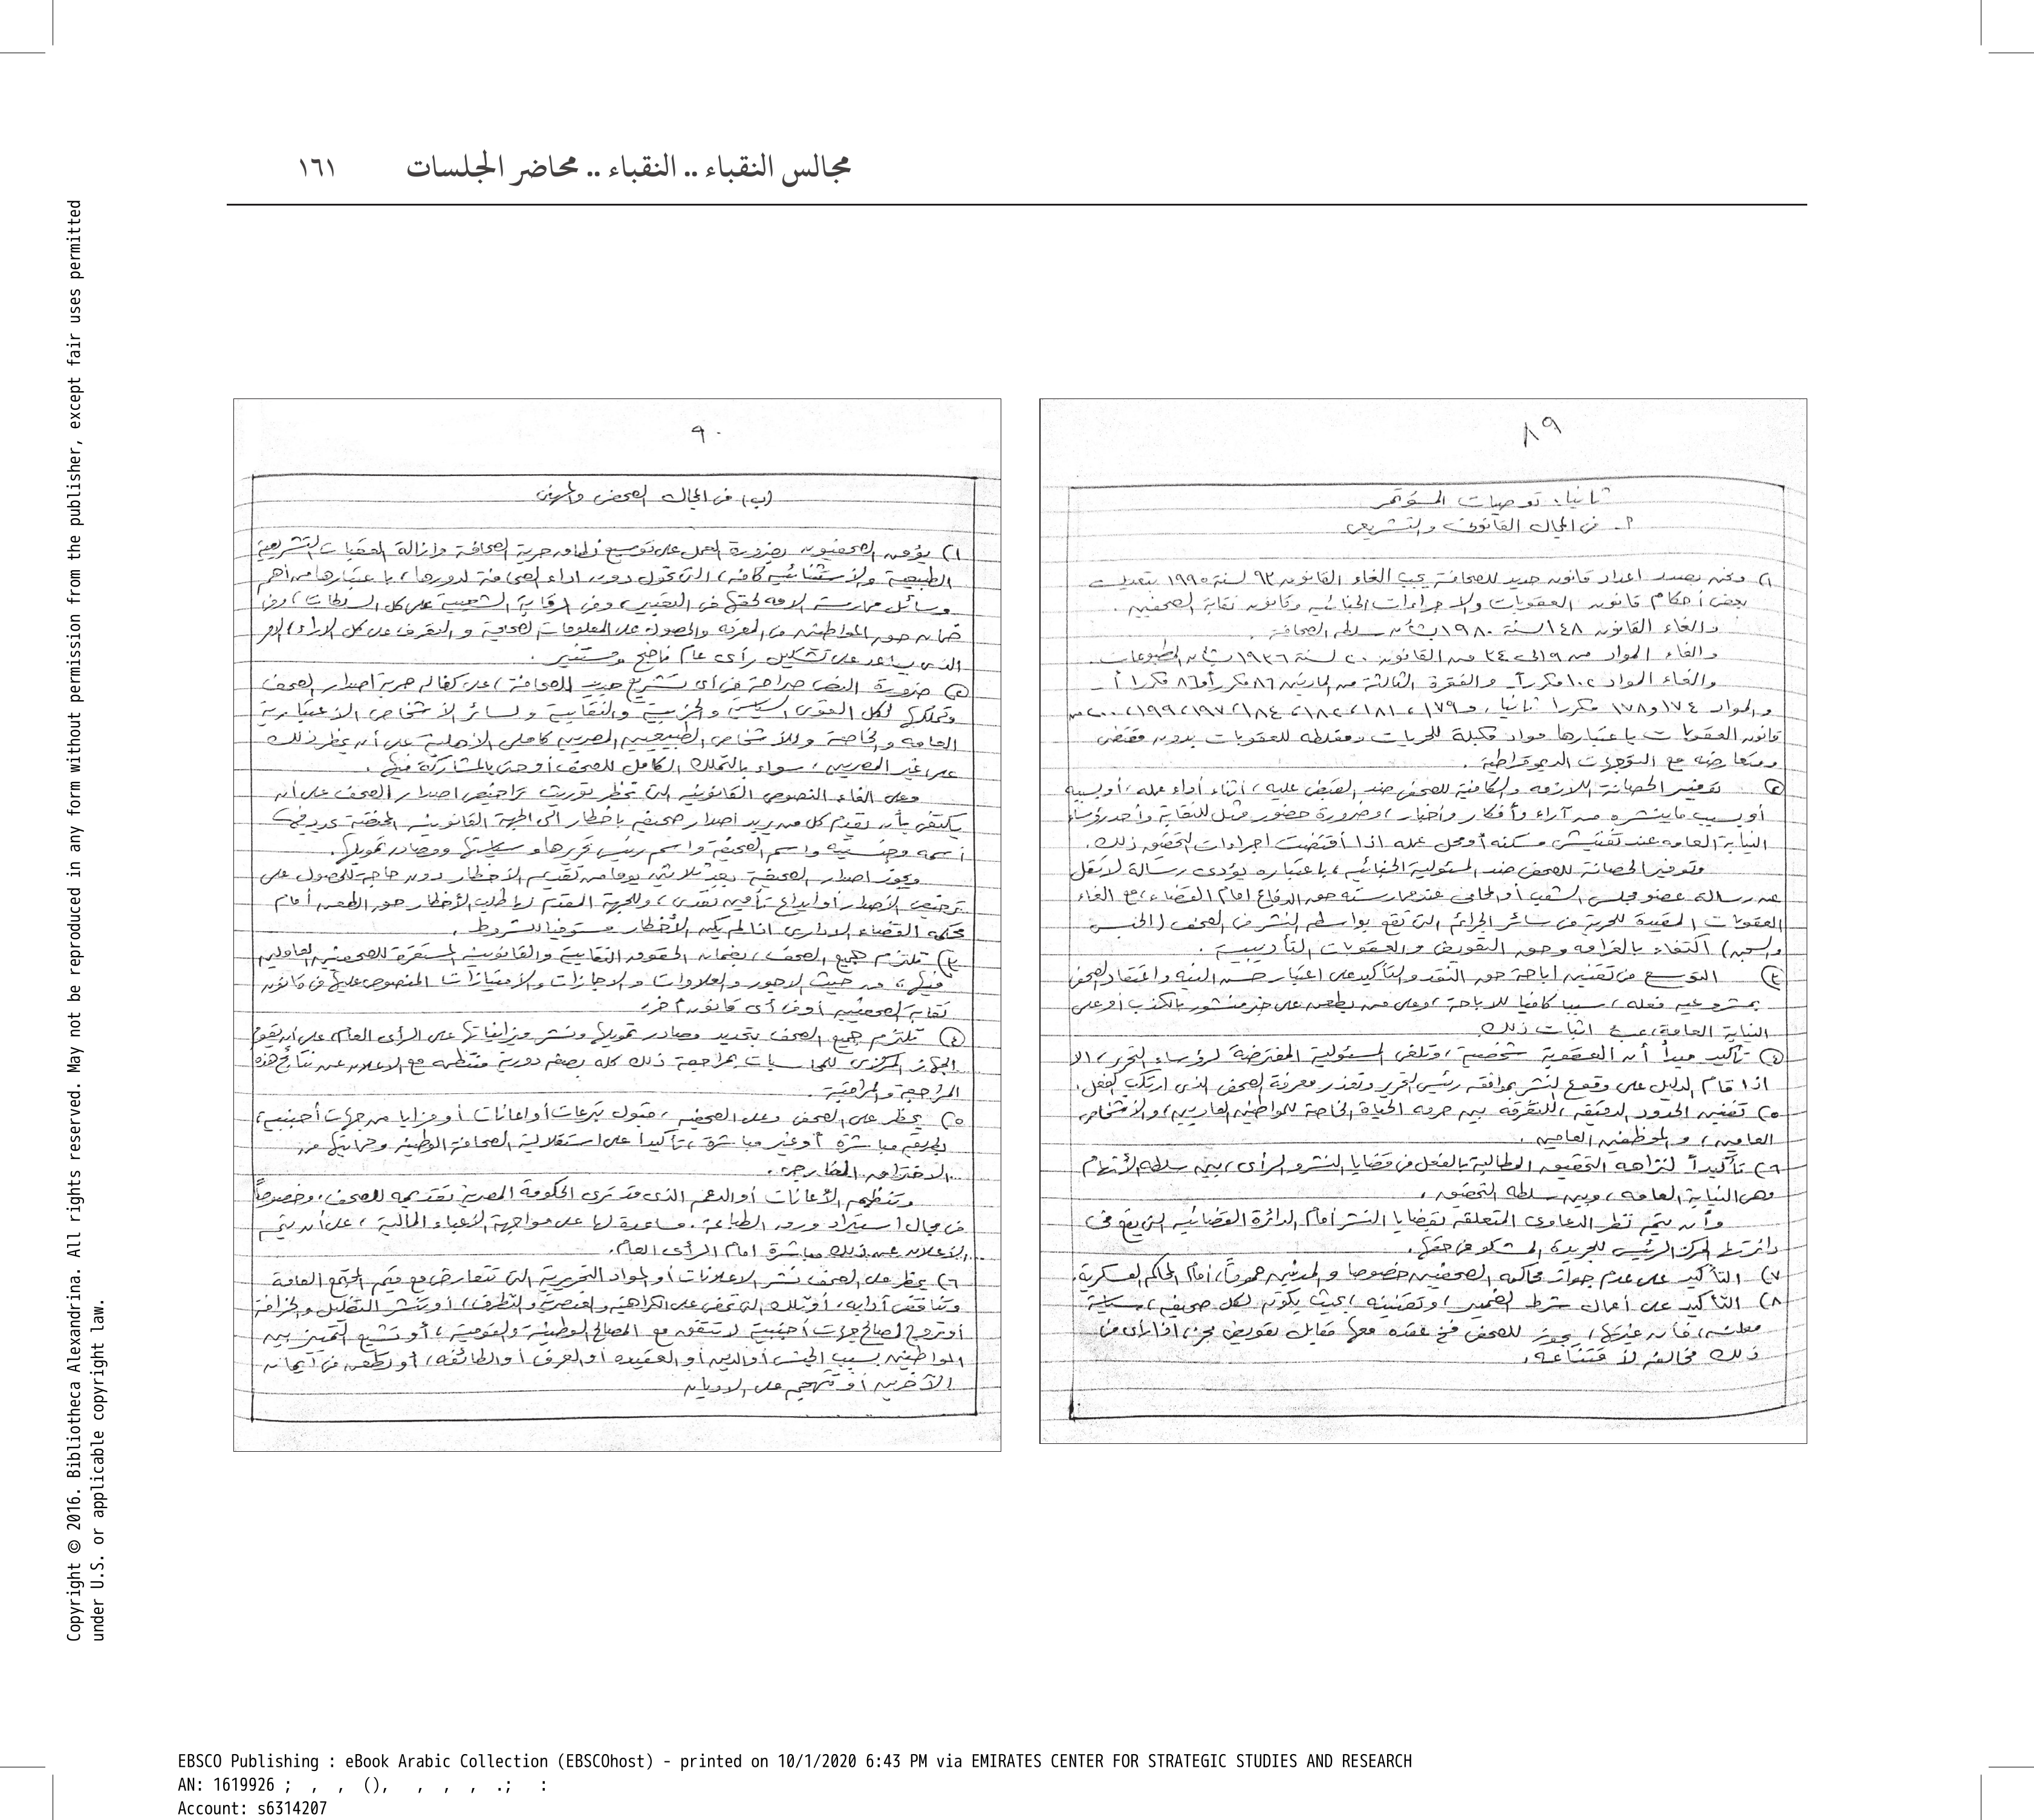 مجالس النقباء .. النقباء .. محاضر الجلسات ١٦١
٨٩
ثانيا: توصيات المؤتمر
أ- فى المجال القانونى والتشريعى
١) ونحن بصدد اعداد قانون جديد للصحافة يجب الغاء القانون ٩٣ لسنة ١٩٩٥ بتعديلات
بعض أحكام قانون العقوبات والاجراءات الجنائيه وقانون نقابة الصحفيين .
والغاء القانون ١٤٨ لسنة ١٩٨٠ بشأن سلطه الصحافة .
والغاء المواد من ٩ الى ٢٤ من القانون ٢٠ لسنة ١٩٣٦ بشأن المطبوعات
والغاء المواد ١٠٢ مكررآ- والفقرة الثالثة من المادتين ٨٦ مكررأ و٨٦ مكررا أ -
والمواد ١٧٤ و١٧٨ مكررا ثانيا، و١٧٩، ١٨١، ١٨٢، ١٨٤، ١٩٧، ١٩٩، ٢٠٠ من
قانون العقوبات باعتبارها مواد مكبلة للحريات ومغلظه للعقوبات بدون مقتضى
ومتعارضه مع التوجهات الديموقراطية .
٢) توفير الحصانة اللازمه والكافية للصحفى ضد القبض عليه، أثناء أداء عمله، أوبسببه
أوبسبب ماينشره من آراء وأفكار وأخبار، وضرورة حضور ممثل للنقابة وأحد رؤساء
النيابة العامه عند تفتيش مسكنه أومحل عمله اذا أقتضت اجراءات التحقيق ذلك.
وتوفير الحصانة للصحفى ضد المسئولية الجنائيه، باعتباره يؤدى رسالة لاتقل
عن رسالة عضو مجلس الشعب أو المحامى عند ممارسته حق الدفاع امام القضاء، مع الغاء
العقوبات المقيدة للحرية فى سائر الجرائم التى تقع بواسطه النشر فى الصحف (الحبس
والسجن) اكتفاء بالغرامه وحق التعويض والعقوبات التأديبية .
٣) التوسع فى تقنين اباحة حق النقد والتأكيد على اعتبار حسن النيه واعتقاد الصحفى
بمشروعيه فعله، سببا كافيا للاباحة، وعلى من يطعن على خبر منشور بالكذب أو على
النيابة العامة، عبء اثبات ذلك
٤) تأكيد مبدأ أن العقوبة شخصية، وتلغى المسئولية المفترضة لرؤساء التحرير، الا
اذا قام الدليل على وقوع النشر بموافقه رئيس التحرير وتعذر معرفة الصحفى الذى ارتكب الفعل.
٥) تقنين الحدود الدقيقه، للتفرقه بين حرمه الحياة الخاصة للمواطنين العاديين، والأشخاص
العامين، والموظفين العامين .
٦) تأكيداً لنزاهه التحقيق المطالبة بالفصل فى قضايا النشر والرأى، بين سلطه الأتهام
وهى النيابة العامه، وبين سلطه التحقيق .
وأن يتم نظر الدعاوى المتعلقه بقضايا النشر أمام الدائرة القضائيه التى يقع فى
دائرتها المركز الرئيسى للجريدة المشكو فى حقها.
٧) التأكيد على عدم جواز محاكمه الصحفيين خصوصا والمدنيين عموماً، أمام المحاكم العسكرية.
٨) التأكيد على أعمال شرط الضمير، وتقنينه، بحيث يكون لكل صحيفه، سياسة
معلنه، فأن غيرتها، يجوز للصحفى فسخ عقده معها مقابل تعويض مجز، اذا رأى فى
ذلك مخالفه لأ قتناعه .
٩٠
(ب) فى المجال الصحفى والمهنى
١) يؤمن الصحفيون بضرورة العمل على توسيع نطاق حرية الصحافة وازالة العقبات التشريعية
الطبيعية والأستثنائيه كافه، التى تحول دون اداء الصحافة لدورها، باعتبارها من أهم
وسائل ممارسة الامه لحقها فى التعبير، وفى الرقابة الشعبية على كل السلطات، وفى
ضمان حق المواطنين فى المعرفه والحصول على المعلومات الصحيحة والتعرف على كل الاراء، الامر
الذى يساعد على تشكيل رأى عام ناضج ومستنير .
٢) ضرورة النص صراحة فى أى تشريع جديد للصحافة، على كفاله حرية اصدار الصحف
وتملكها لكل القوى السياسية والحزبية والنقابية ولسائر الأشخاص الاعتبارية
العامه والخاصة وللأشخاص الطبيعيين المصريين كاملى الأهلية على أن يحظر ذلك
على غير المصريين، سواء بالتملك الكامل للصحف أو حتى بالمشاركة فيها .
وعلى الغاء النصوص القانونيه التى تحظر توريث تراخيص اصدار الصحف على أن
يكتفى بأن يقدم كل من يريد اصدار صحيفه باخطار الى الجهة القانونيه المختصة يحدد فيها
أسمه وجنسيته واسم الصحيفه واسم رئيس تحريرها وسياستها ومصادر تمويلها.
ويجوز اصدار الصحيفة بعد ثلاثين يوما من تقديم الأخطار دون حاجة للحصول على
ترخيص الأصدار أو ايداع تأمين نقدى، وللجهة المقدم لها طلب الأخطار حق الطعن أمام
محكمه القضاء الادارى اذا لم يكن الأخطار مستوفيا للشروط .
٣) تلتزم جميع الصحف، بضمان الحقوق النقابية والقانونيه المستقرة للصحفيين العاملين
فيها، من حيث الاجور والعلاوات والاجازات والأمتيازات المنصوص عليها فى قانون
نقابة الصحفيين أو فى أى قانون أخر.
٤) تلتزم جميع الصحف بتحديد مصادر تمويلها ونشر ميزانياتها على الرأى العام، على أن يقوم
الجهاز المركزى للمحاسبات بمراجعة ذلك كله بصفه دورية منتظمه مع الاعلان عن نتائج هذه
المراجعة والمراقبة.
٥) يحظر على الصحف وعلى الصحفيين، قبول تبرعات أو اعانات أو مزايا من جهات أجنبيه،
بطريقه مباشرة أوغير مباشرة، تأكيداً على استقلالية الصحافة الوطنية وحمايتها من
الاختراق الخارجى .
وتنظيم الأعانات أو الدعم الذى قد ترى الحكومة المصرية تقديمه للصحف، وخصوصاً
فى مجال أستيراد ورق الطباعة . مساعدة لها على مواجهة الأعباء المالية، على أن يتم
الأعلان عن ذلك مباشرة امام الرأى العام.
٦) يحظر على الصحف نشر الاعلانات أو المواد التحريرية التى تتعارض مع قيم المجتمع العامة
وتناقض أدابه، أوتلك التى تحض على الكراهيه والعنصرية والتطرف، أو تنشر التضليل والخرافة
أو تروج لصالح جهات أجنبية لا تتفق مع المصالح الوطنية والقومية، أو تشيع التمييز بين
المواطنين بسبب الجنس أو الدين أو العقيده أو العرق أو الطائفه، أو تطعن فى ايمان
الآخرين أو تتهجم على الاديان
Copyright © 2016. Bibliotheca Alexandrina. All rights reserved. May not be reproduced in any form without permission from the publisher, except fair uses permitted
under U.S. or applicable copyright law.
EBSCO Publishing : eBook Arabic Collection (EBSCOhost) - printed on 10/1/2020 6:43 PM via EMIRATES CENTER FOR STRATEGIC STUDIES AND RESEARCH
AN: 1619926 ; , , (), , , , .; :
Account: s6314207